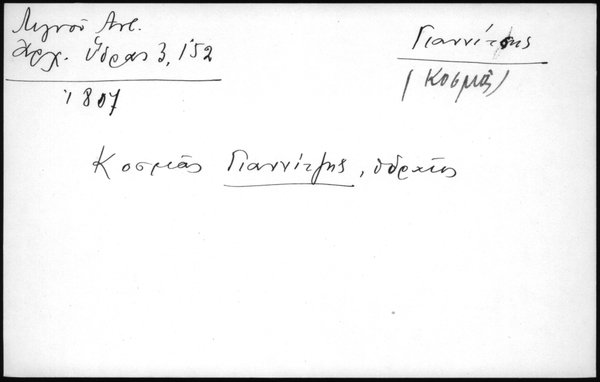 Λιγνοῦ Ἀντ.
Ἀρχ. Ὕδρας 3, 152
1807
Γιαννίτσης
(Κοσμᾶς)
Κοσμᾶς Γιαννίτζης, ὑδραῖος